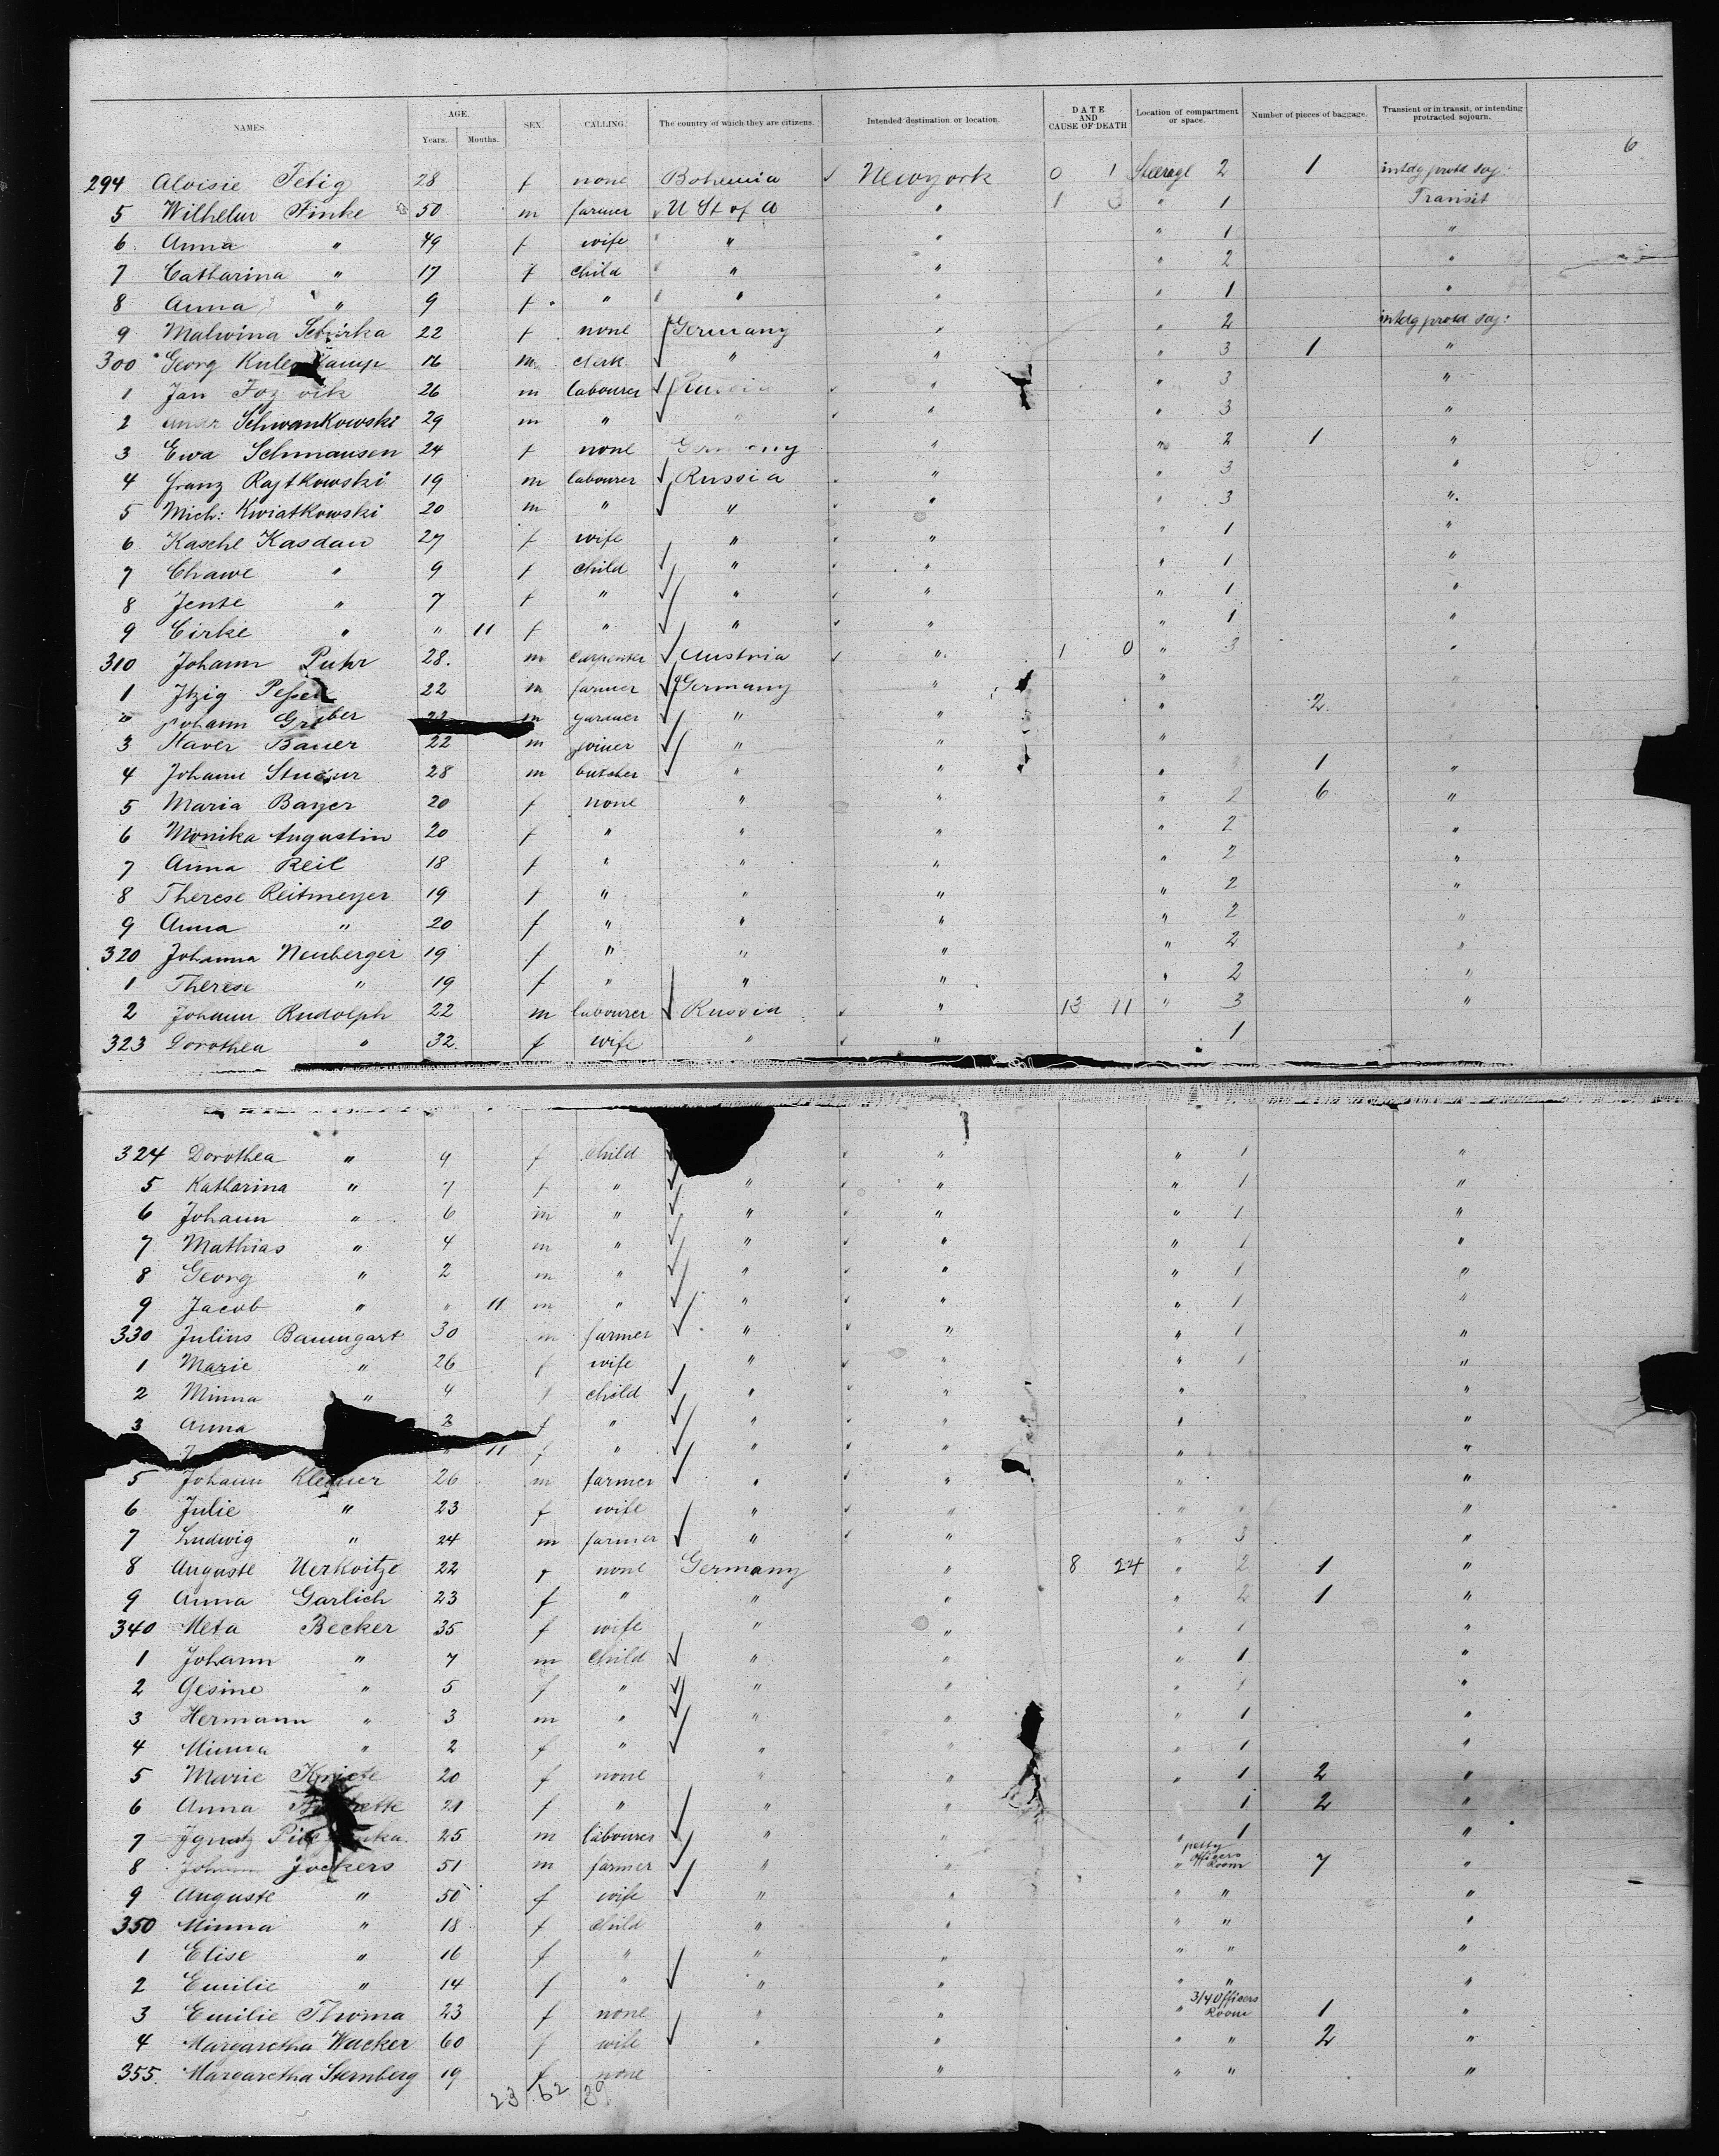 NAMES. AGE. Years. Months. SEX. CALLING. The country of which they are citizens. Intended destination or location. DATE AND CAUSE OF DEATH Location of compartment or space. Number of pieces of baggage. Transient or in transit, or intending protracted sojourn.
6
294 Aloisie Tetig 28 f none Bohemia Newyork 0 1 Steerage 2 1 intdg protd soj:
5 Wilhelm Finke 50 m farmer U St of A " 1 3 " 1 Transit
6 Anna " 49 f wife " " " 1 "
7 Catharina " 17 f child " " " 2 "
8 Anna " 9 f " " " " 1 "
9 Malwina 22 f none Germany " " 2 intdg protd soj:
300 Georg 16 m clerk " " " 3 1 "
1 Jan 26 m labourer Russia " " 3 "
2 Schwankowski 29 m " " " " 3 "
3 Ewa Schmausen 24 f none Germany " " 2 1 "
4 Franz Rajtkowski 19 m labourer Russia " " 3 "
5 Mich: Kwiatkowski 20 m " " " " 3 "
6 Kasche Kasdan 27 f wife " " " 1 "
7 Chawe " 9 f child " " " 1 "
8 Jente " 7 f " " " " 1 "
9 Cirke " " 11 f " " " " 1 "
310 Johann Puhr 28. m carpenter Austria " 1 0 " 3 "
1 Itzig 22 m farmer Germany " " "
Johann Gruber 23 m gardner " " " 2. "
3 Xaver Bauer 22 m joiner " " " "
4 Johann 28 m butcher " " " 3 1 "
5 Maria Bayer 20 f none " " " 2 6 "
6 Monika Augustin 20 f " " " " 2 "
7 Anna Reil 18 f " " " " 2 "
8 Therese Reitmeyer 19 f " " " " 2 "
9 Anna " 20 f " " " " 2 "
320 Johanna Neuberger 19 f " " " " 2 "
1 Therese " 19 f " " " " 2 "
2 Johann Rudolph 22 m labourer Russia " 13 11 " 3 "
323 Dorothea " 32. f wife " " 1
324 Dorothea " 9 f child " " 1 "
5 Katharina " 7 f " " " " 1 "
6 Johann " 6 m " " " " 1 "
7 Mathias " 4 m " " " " 1 "
8 Georg " 2 m " " " " 1 "
9 Jacob " " 11 m " " " " 1 "
330 Julius Baumgart 30 m farmer " " " 1 "
1 Marie " 26 f wife " " " 1 "
2 Minna " 4 f child " " " "
3 Anna 2 f " " " " "
" 11 f " " " " "
5 Johann 26 m farmer " " " "
6 Julie " 23 f wife " " " " "
7 Ludwig " 24 m farmer " " " 3 "
8 Auguste Uerkvitze 22 f none Germany " 8 24 " 2 1 "
9 Anna Garlich 23 f " " " " 2 1 "
340 Meta Becker 35 f wife " " " 1 "
1 Johann " 7 m child " " " 1 "
2 Gesine " 5 f " " " " 1 "
3 Hermann " 3 m " " " " 1 "
4 Minna " 2 f " " " " 1 "
5 Marie Kniete 20 f none " " " 1 2 "
6 Anna 21 f " " " 1 2 "
7 Ignatz 25 m labourer " " " 1 "
8 Jockers 51 m farmer " " " petty Officers Room 7 "
9 Auguste " 50 f wife " " " " "
350 Minna " 18 f child " " " " "
1 Elise " 16 f " " " " " "
2 Emilie " 14 f " " " " " "
3 Emilie Thoma 23 f none " " " 3/4 Officers Room 1 "
4 Margaretha Wacker 60 f wife " " " " 2 "
355. Margaretha Sternberg 19 f none " " " "
23 62 39